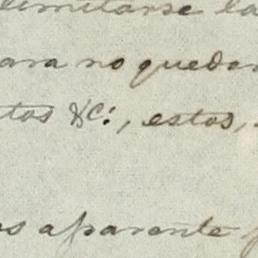 limitarse la
ara no quedar
tos &c:, estos,
os aparente